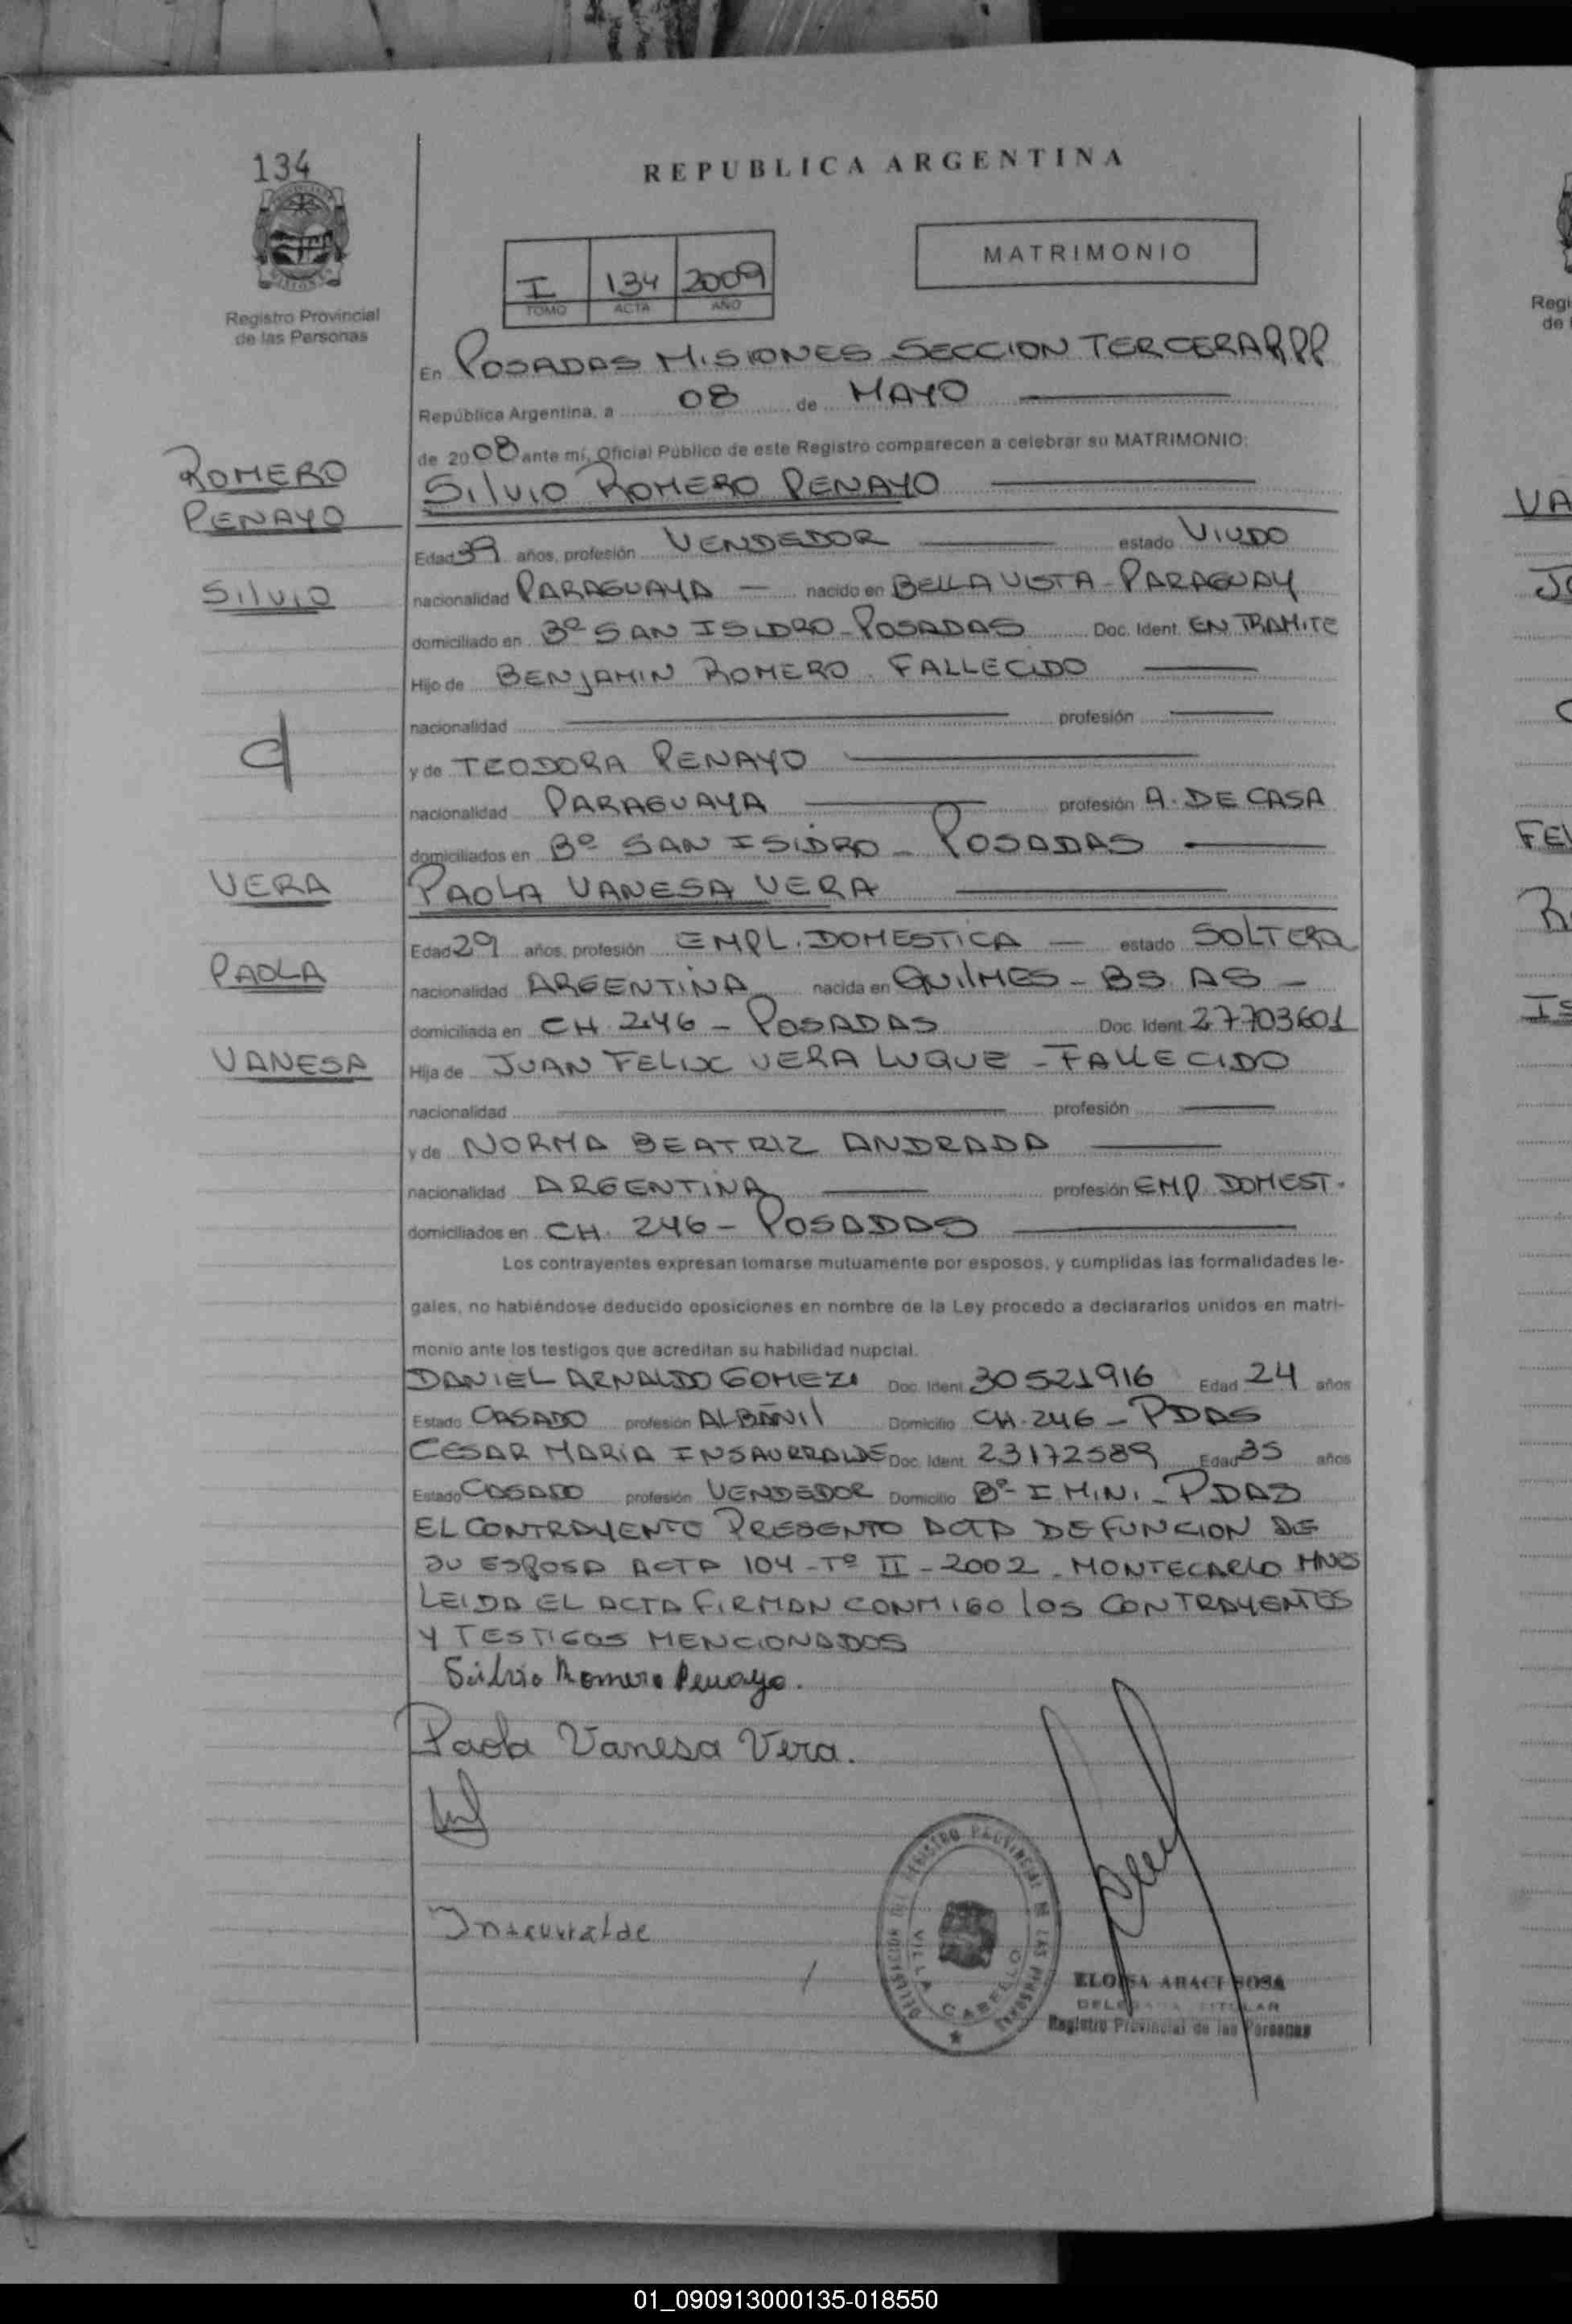 134
REPUBLICA ARGENTINA
MATRIMONIO
I 134 2009
TOMO ACTA AÑO
Registro Provincial
de las Personas
En POSADAS MISIONES SECCION TERCERA RPP
República Argentina, a 08 de MAYO
de 2008 ante mí, Oficial Público de este Registro comparecen a celebrar su MATRIMONIO:
ROMERO
PENAYO
SILVIO
SILVIO ROMERO PENAYO
Edad 39 años, profesión VENDEDOR estado VIUDO
nacionalidad PARAGUAYA nacido en BELLA VISTA - PARAGUAY
domiciliado en Bº SAN ISIDRO - POSADAS Doc. Ident. EN TRAMITE
Hijo de BENJAMIN ROMERO. FALLECIDO
nacionalidad profesión
y de TEODORA PENAYO
nacionalidad PARAGUAYA profesión A. DE CASA
domiciliados en Bº SAN ISIDRO - POSADAS
VERA
PAOLA
VANESA
PAOLA VANESA VERA
Edad 29 años, profesión EMPL. DOMESTICA estado SOLTERA
nacionalidad ARGENTINA nacida en QUILMES - BS. AS -
domiciliada en CH. 246 - POSADAS Doc. Ident. 27703601
Hija de JUAN FELIX VERA LUQUE - FALLECIDO
nacionalidad profesión
y de NORMA BEATRIZ ANDRADA
nacionalidad ARGENTINA profesión EMP. DOMEST.
domiciliados en CH. 246 - POSADAS
Los contrayentes expresan tomarse mutuamente por esposos, y cumplidas las formalidades le-
gales, no habiéndose deducido oposiciones en nombre de la Ley procedo a declararlos unidos en matri-
monio ante los testigos que acreditan su habilidad nupcial.
DANIEL ARNALDO GOMEZ Doc. Ident. 30521916 Edad 24 años
Estado CASADO profesión ALBAÑIL Domicilio CH. 246 - PDAS
CESAR MARIA INSAURRALDE Doc. Ident. 23172589 Edad 35 años
Estado CASADO profesión VENDEDOR Domicilio Bº I MINI - PDAS
EL CONTRAYENTE PRESENTO ACTA DEFUNCION DE
SU ESPOSA ACTA 104 - Tº II - 2002 - MONTECARLO MNES
LEIDA EL ACTA FIRMAN CONMIGO LOS CONTRAYENTES
Y TESTIGOS MENCIONADOS
Silvio Romero Penayo.
Paola Vanesa Vera.
Insaurralde
DELEGACION DEL REGISTRO PROVINCIAL DE LAS PERSONAS
VILLA CABELLO
ELOISA ARACI SOSA
DELEGADA TITULAR
Registro Provincial de las Personas
VA
FE
IS
01_090913000135-018550